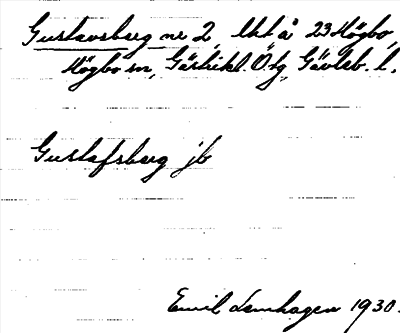 Gustavsberg nr 2, lht å 23 Högbo,
Högbo sn, Gästrikl. Ö. tg, Gävleb. l.
Gustafsberg jb
Emil Lernhagen 1930.